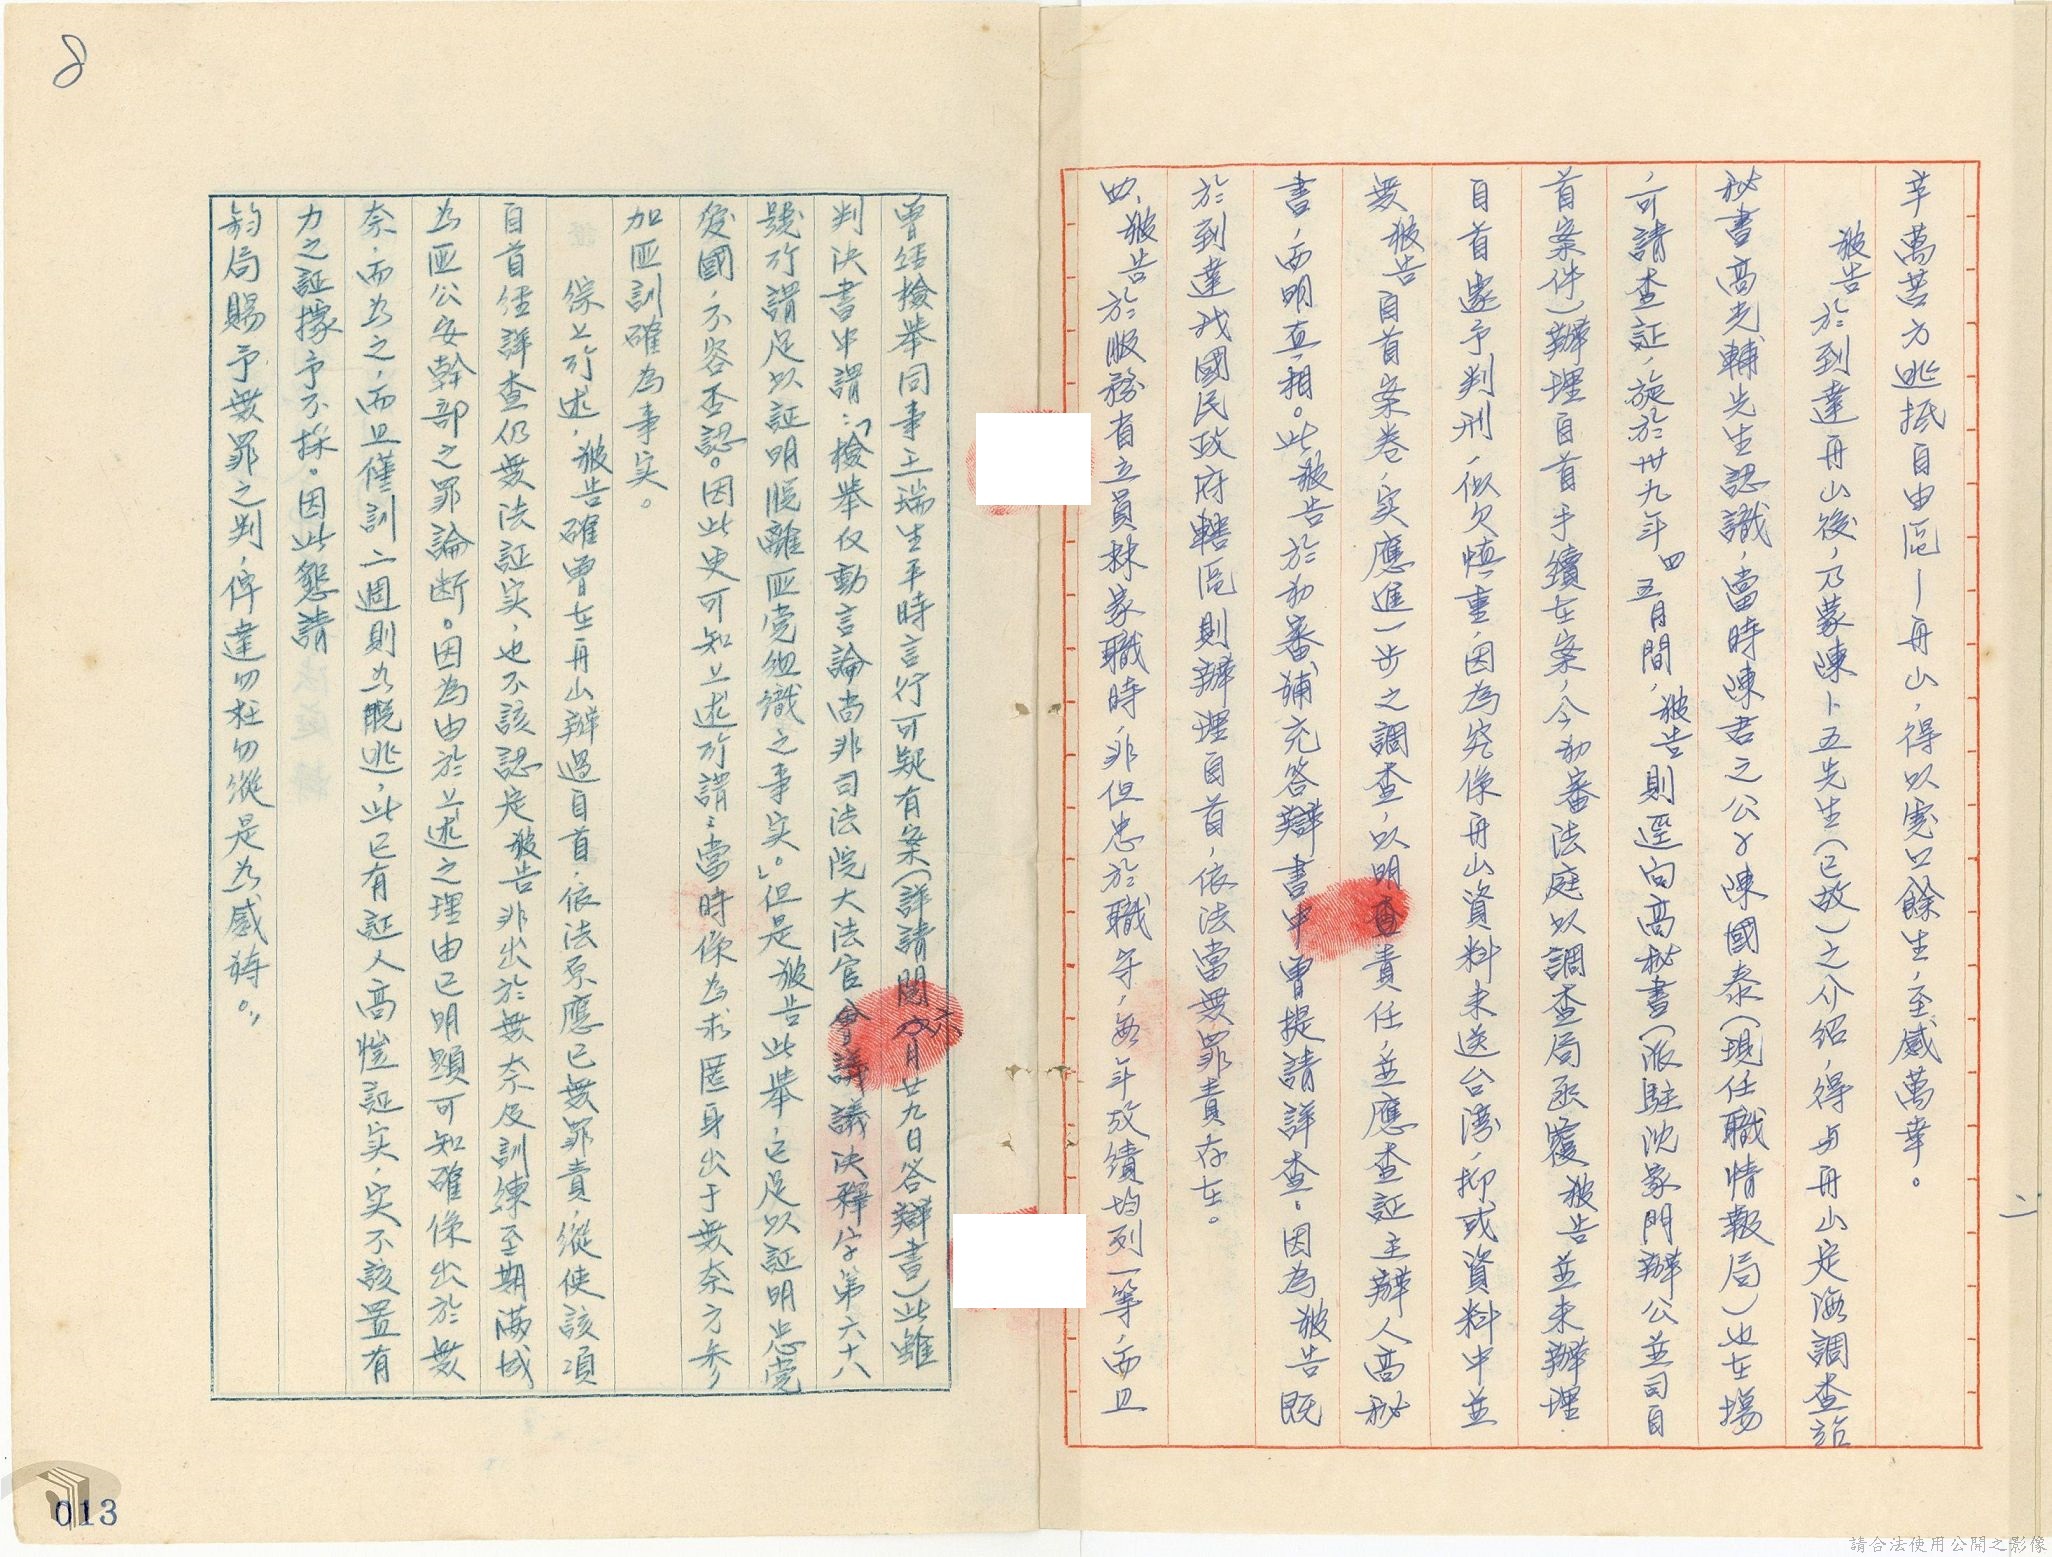 辛萬苦方逃抵自由區—舟山，得以虎口餘生，至感萬幸。
被告於到達舟山後，乃蒙陳卜五先生(已故)之介紹，得与舟山定海調查站
秘書高光輔先生認識，當時陳君之公子陳國泰(現任職情報局)也在場
，可請查証，旋於卅九年四五月間，被告則逕向高秘書(派駐沈家門辦公並司自
首案件)辦理自首手續在案，今初審法庭以調查局函覆被告並未辦理
自首遂予判刑，似欠慎重，因為究係舟山資料未送台湾，抑或資料中並
無被告自首案卷，实應進一步之調查，以明查責任，並應查証主辦人高秘
書，而明真相。此被告於初審補充答辯書中曾提請詳查。因為被告既
於到達我國民政府轄區則辦理自首，依法當無罪責存在。
四、被告於服務省立員林家職時，非但忠於職守，每年攷績均列一等，而且
曾经檢举同事王瑞生平時言行可疑有案(詳請閱六月廿九日答辯書)此雖
判决書中謂：「檢舉仅動言論尚非司法院大法官會議議決釋字第六十八
號所謂足以証明脱離匪党组織之事实。」但是被告此舉，已足以証明忠党
愛國，不容否認。因此更可知上述所謂：當時係為求匿身出于無奈方参
加匪訓確為事实。
綜上所述，被告確曾在舟山辦過自首，依法原應已無罪責，縱使該項
自首经詳查仍無法証实，也不該認定被告非出於無奈及訓練至期滿成
為匪公安幹部之罪論断。因為由於上述之理由已明顕可知確係出於無
奈，而為之，而且僅訓二週則為脱逃，此已有証人高愷証实，实不該置有
力之証據予不採。因此懇請
鈞局賜予無罪之判，俾達勿枉勿縱是為感祷。
8
013
請合法使用公開之影像